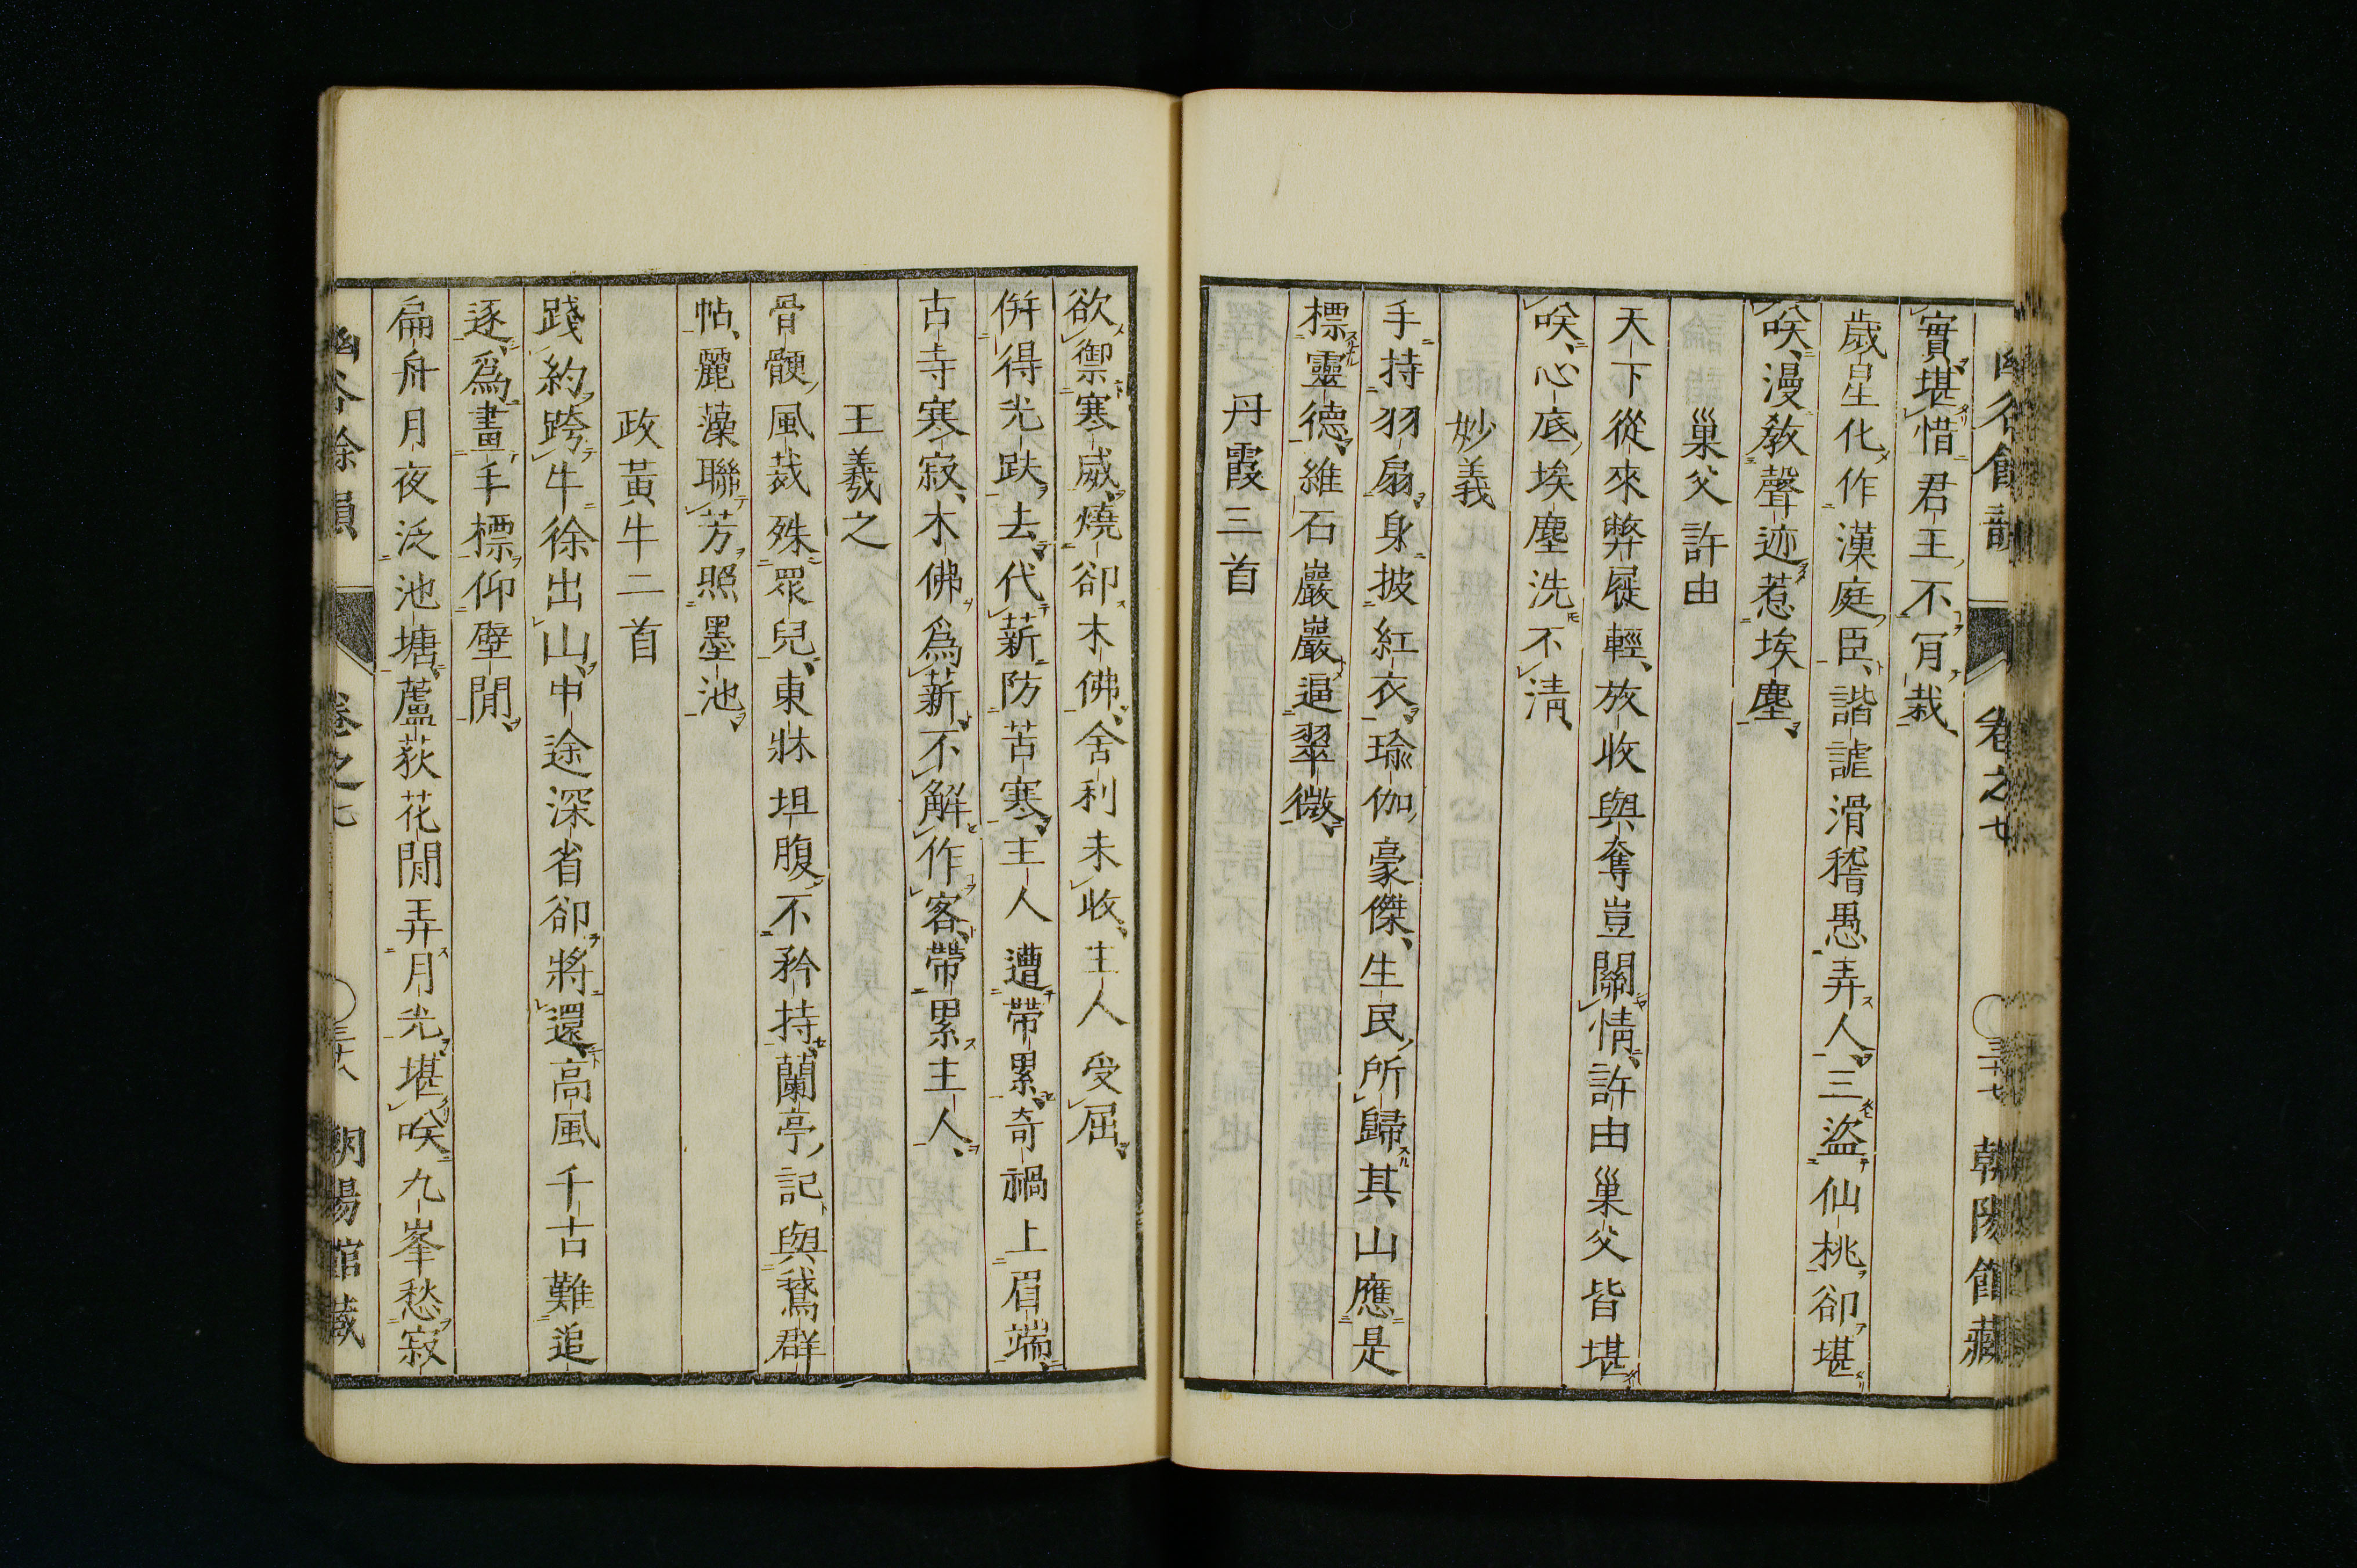 幽谷餘韻 卷之七 三十七 朝陽館藏
實堪惜君王不肎栽
歲星化作漢庭臣諧謔滑稽愚弄人三盜仙桃卻堪
咲漫敎聲迹惹埃塵
巢父許由
天下從來弊屣輕放收與奪豈關情許由巢父皆堪
咲心底埃塵洗不淸
妙義
手持羽扇身披紅衣瑜伽豪傑生民所歸其山應是
標靈德維石巖巖逼翠微
丹霞三首
欲禦寒威燒卻木佛舍利未收主人受屈
倂得光趺去代薪防苦寒主人遭帶累奇禍上眉端
古寺寒寂木佛爲薪不解作客帶累主人
王羲之
骨鯁風裁殊眾兒東牀坦腹不矜持蘭亭記與鵞群
帖麗藻聯芳照墨池
政黃牛二首
踐約跨牛徐出山中途深省卻將還高風千古難追
逐爲畫手標仰壁閒
扁舟月夜泛池塘蘆荻花閒弄月光堪咲九峯愁寂
幽谷餘韻 卷之七 三十八 朝陽館藏